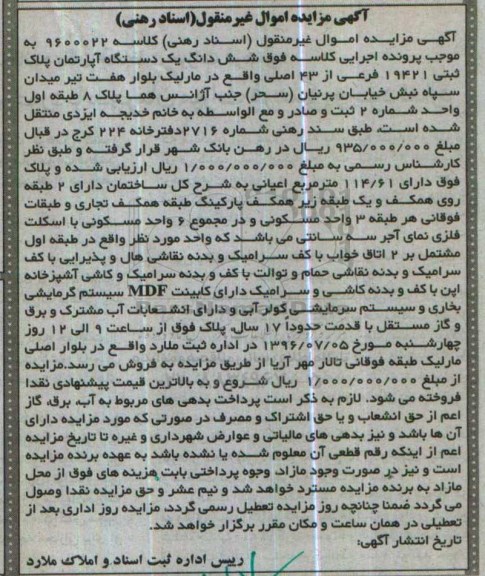 آگهی مزایده اموال غیرمنقول(اسناد رهنی)
آگهی مزایده اموال غیرمنقول (اسناد رهنی) کلاسه ۹۶۰۰۰۲۲ به
موجب پرونده اجرایی کلاسه فوق شش دانگ یک دستگاه آپارتمان پلاک
ثبتی ۱۹۴۲۱ فرعی از ۴۳ اصلی واقع در مارلیک بلوار هفت تیر میدان
سپاه نبش خیابان پرنیان (سحر) جنب آژانس هما پلاک ۸ طبقه اول
واحد شماره ۲ ثبت و صادر و مع الواسطه به خانم خدیجه ایزدی منتقل
شده است، طبق سند رهنی شماره ۲۷۱۶دفترخانه ۲۲۴ کرج در قبال
مبلغ ۹۳۵/۰۰۰/۰۰۰ ریال در رهن بانک شهر قرار گرفته و طبق نظر
کارشناس رسمی به مبلغ ۱/۰۰۰/۰۰۰/۰۰۰ ریال ارزیابی شده و پلاک
فوق دارای ۱۱۴/۶۱ مترمربع اعیانی به شرح کل ساختمان دارای ۲ طبقه
روی همکف و یک طبقه زیر همکف پارکینگ طبقه همکف تجاری و طبقات
فوقانی هر طبقه ۳ واحد مسکونی و در مجموع ۶ واحد مسکونی با اسکلت
فلزی نمای آجر سه سانتی می باشد که واحد مورد نظر واقع در طبقه اول
مشتمل بر ۲ اتاق خواب با کف سرامیک و بدنه نقاشی هال و پذیرایی با کف
سرامیک و بدنه نقاشی حمام و توالت با کف و بدنه سرامیک و کاشی آشپزخانه
اپن با کف و بدنه کاشی و سرامیک دارای کابینت MDF سیستم گرمایشی
بخاری و سیستم سرمایشی کولر آبی و دارای انشعابات آب مشترک و برق
و گاز مستقل با قدمت حدوداً ۱۷ سال، پلاک فوق از ساعت ۹ الی ۱۲ روز
چهارشنبه مورخ ۱۳۹۶/۰۷/۰۵ در اداره ثبت ملارد واقع در بلوار اصلی
مارلیک طبقه فوقانی تالار مهر آریا از طریق مزایده به فروش می رسد.مزایده
از مبلغ ۱/۰۰۰/۰۰۰/۰۰۰ ریال شروع و به بالاترین قیمت پیشنهادی نقدا
فروخته می شود. لازم به ذکر است پرداخت بدهی های مربوط به آب، برق، گاز
اعم از حق انشعاب و یا حق اشتراک و مصرف در صورتی که مورد مزایده دارای
آن ها باشد و نیز بدهی های مالیاتی و عوارض شهرداری و غیره تا تاریخ مزایده
اعم از اینکه رقم قطعی آن معلوم شده یا نشده باشد به عهده برنده مزایده
است و نیز در صورت وجود مازاد، وجوه پرداختی بابت هزینه های فوق از محل
مازاد به برنده مزایده مسترد خواهد شد و نیم عشر و حق مزایده نقدا وصول
می گردد ضمنا چنانچه روز مزایده تعطیل رسمی گردد، مزایده روز اداری بعد از
تعطیلی در همان ساعت و مکان مقرر برگزار خواهد شد.
تاریخ انتشار آگهی:
رییس اداره ثبت اسناد و املاک ملارد